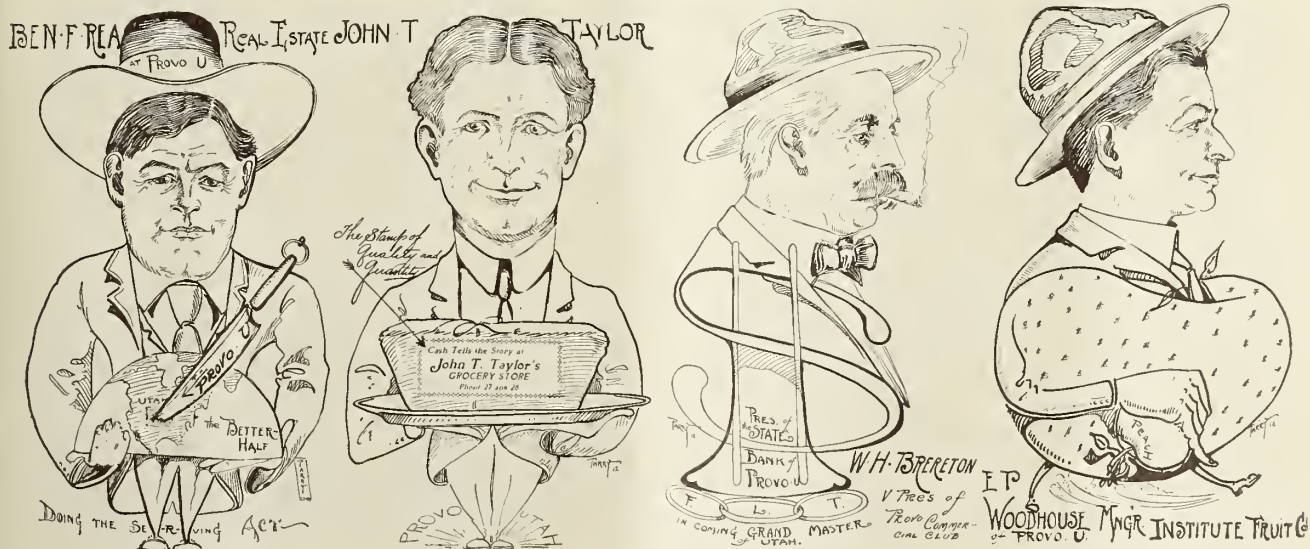 BEN·F·REA
REAL ESTATE
AT PROVO U
PROVO U
UTAH
the BETTER-
HALF
TARRT
DOING THE SE-R-VING ACT
JOHN T TAYLOR
The Stamp of
Quality and
Quantity
Cash Tells the Story at
John T. Taylor's
GROCERY STORE
Phone 27 and 28
TARRT 12
PROVO UTAH
TARRT 12
PRES. of
the STATE
BANK of
PROVO U
F. L. T.
IN COMING GRAND MASTER
of UTAH.
W·H·BRERETON
V PRES of
PROVO COMMER-
CIAL CLUB
PEACH
TARRT 12
E P
WOODHOUSE MNG'R INSTITUTE FRUIT CO
of PROVO. U.